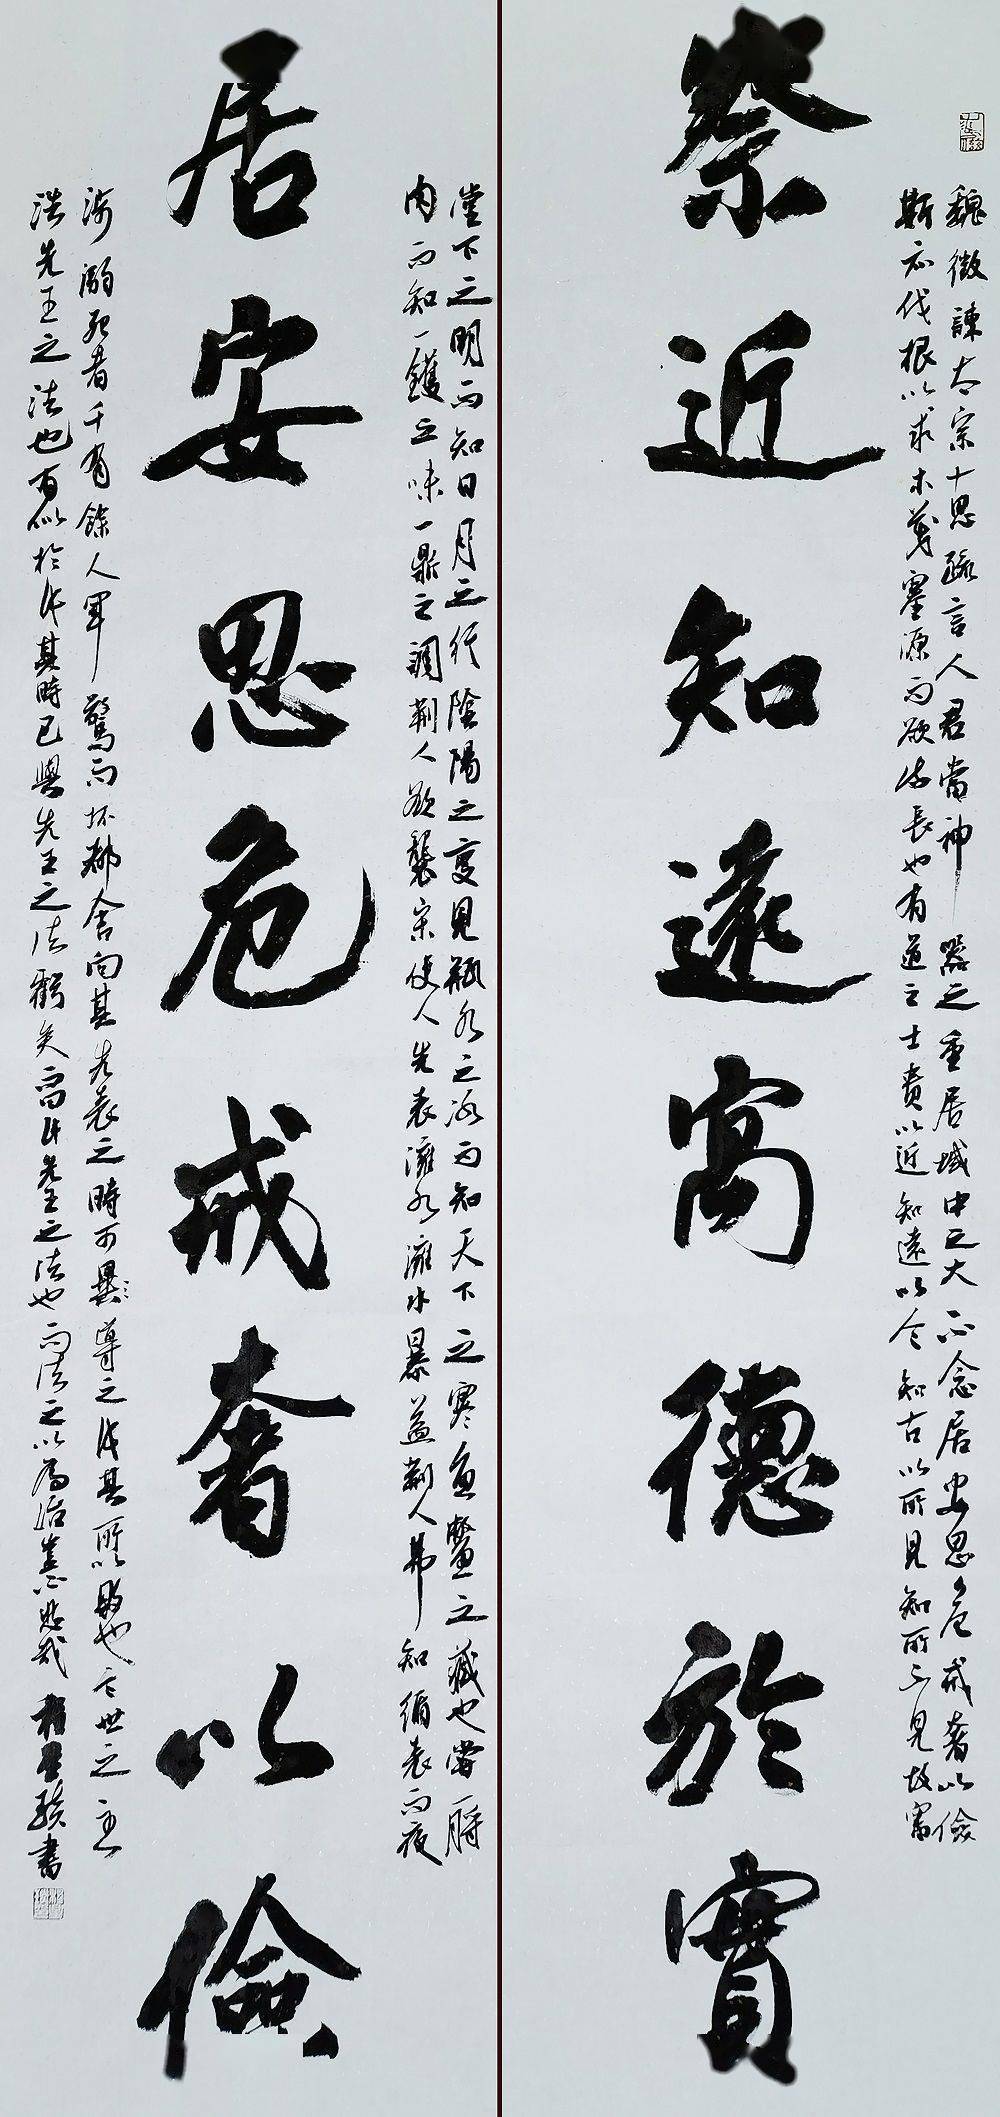 魏徵諫太宗十思疏言人君當神器之重居域中之大不念居安思危戒奢以儉
斯亦伐根以求木茂塞源而欲流長也有道之士貴以近知遠以今知古以所見知所不見故審
祭近知遠寓德於實
堂下之明而知日月之行陰陽之變見瓶水之冰而知天下之寒魚鱉之藏也嘗一脟
肉而知一鑊之味一鼎之調荊人欲襲宋使人先表澭水澭水暴益荊人弗知循表而夜
居安思危戒奢以儉
涉溺死者千有餘人軍驚而坏都舍向其先表之時可導之此其所以敗也今世之主
法先王之法也有似於此其時已與先王之法虧矣而曰此先王之法也而法之以為治豈不悲哉 書